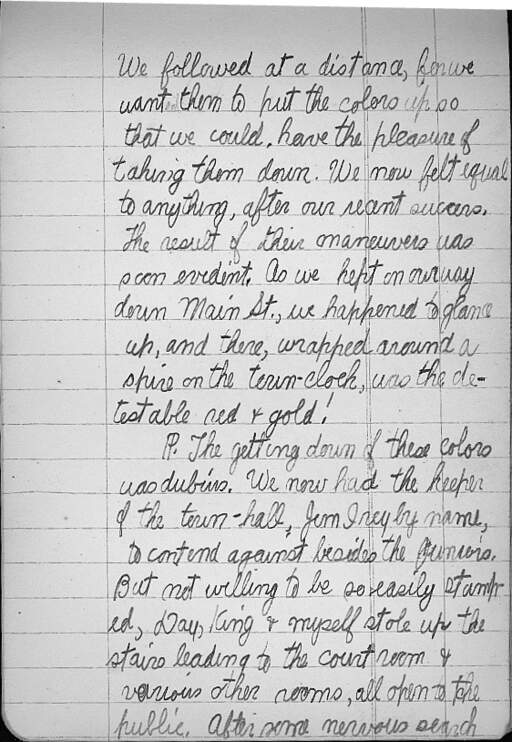 We followed at a distance, for we
want them to put the colors up so
that we could, have the pleasure of
taking them down. We now felt equal
to anything, after our recent success.
The result of their maneuvers was
soon evident. As we kept on our way
down Main St., we happened to glance
up, and there, wrapped around a
spire on the town-clock, was the de-
testable red & gold!
P. The getting down of these colors
was dubius. We now had the keeper
of the town-hall, Jem Irey by name,
to contend against besides the Juniors.
But not willing to be so easily stamp-
ed, Day, King & myself stole up the
stairs leading to the court room &
various other rooms, all open to the
public. After some nervous search